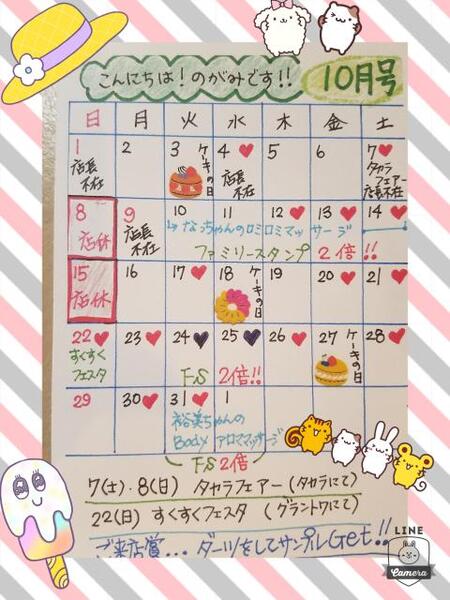 こんにちは！のがみです!!
10月号
日 月 火 水 木 金 土
1 店長不在
2
3 ケーキの日
4 店長不在
5
6
7 タカラフェアー店長不在
8 店休
9 店長不在
10 11 12 13 14
なっちゃんのロミロミマッサージ
ファミリースタンプ 2倍!!
15 店休
16
17
18 ケーキの日
19
20
21
22 すくすくフェスタ
23
24 25
F·S 2倍!!
26
27 ケーキの日
28
29
30
31 1
裕美ちゃんの
Body アロママッサージ
F·S 2倍
7(土)·8(日) タカラフェアー(タカラにて)
22(日) すくすくフェスタ (グラントワにて)
ご来店賞... ダーツをしてサンプルGet!!
LINE
Camera